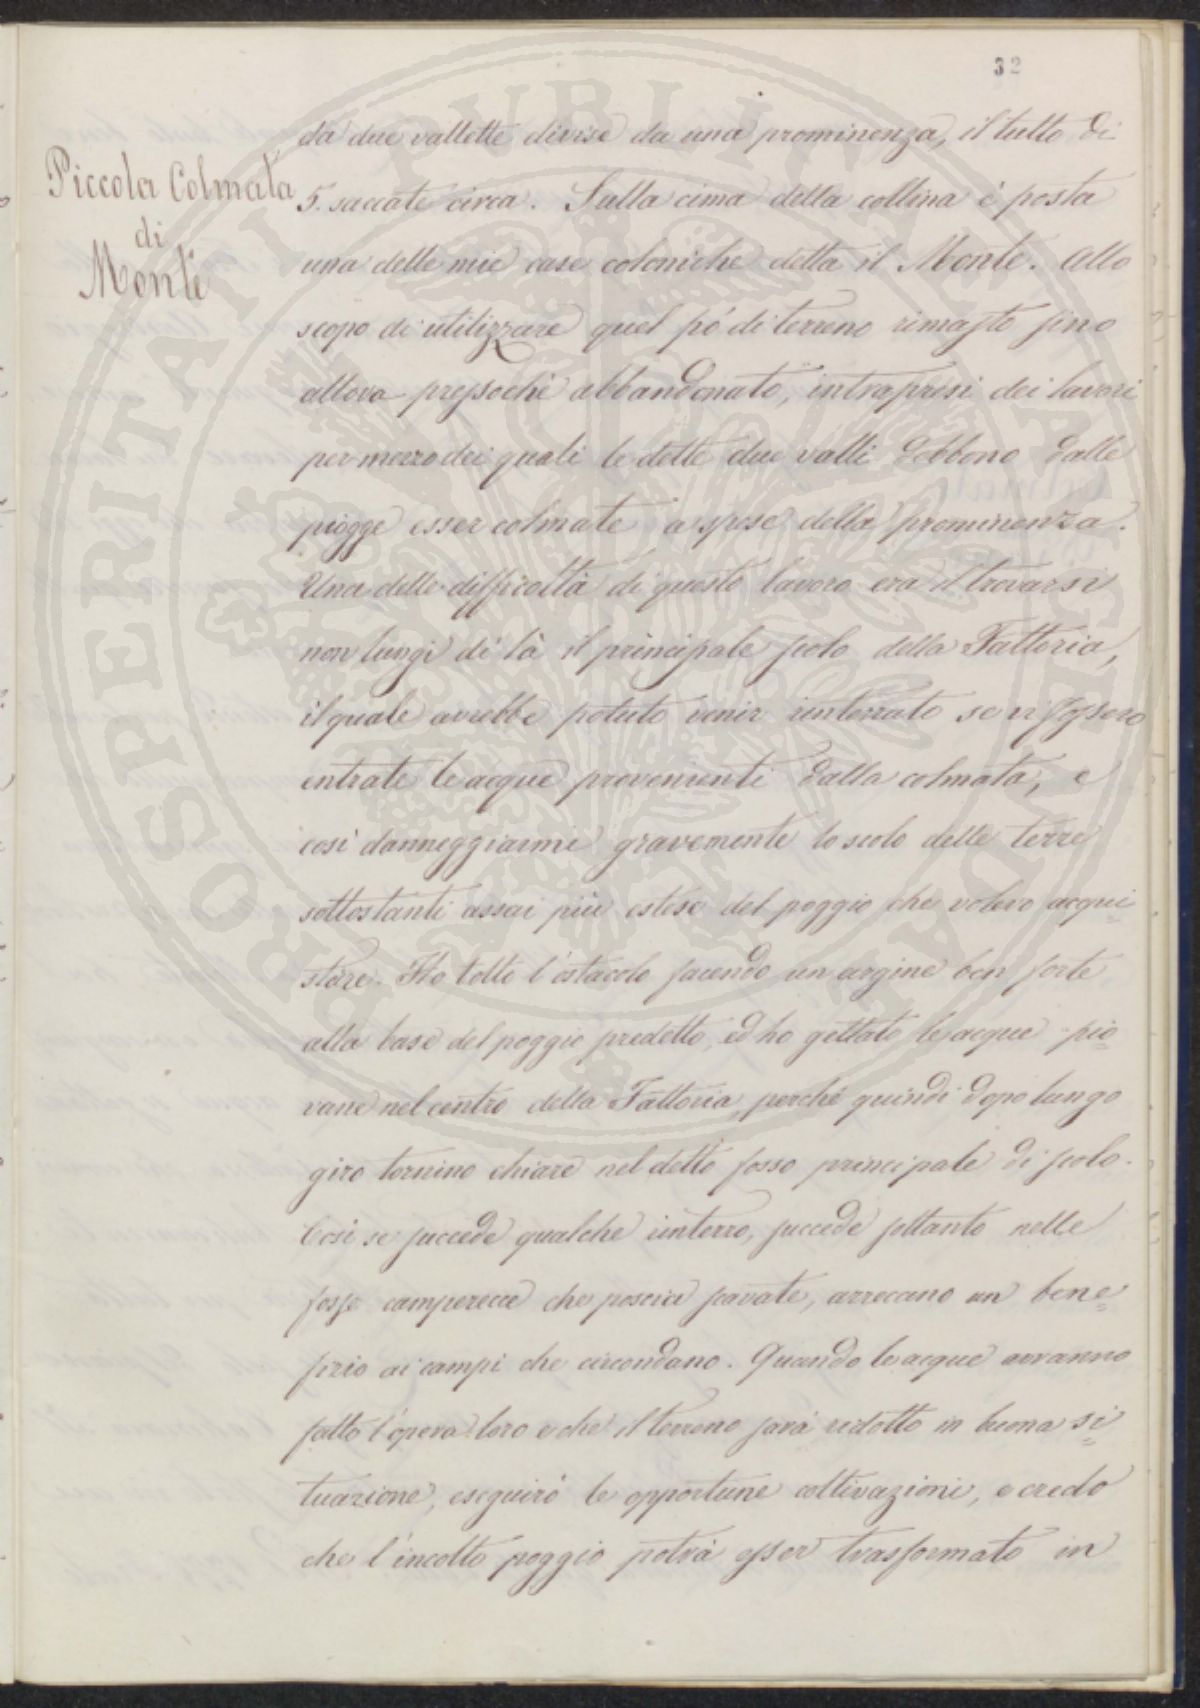 32
Piccola Colmata
di
Monti
da due vallette divise da una prominenza, il tutto di
5. saccate circa. Sulla cima della collina è posta
una delle mie case coloniche detta il Monte. Allo
scopo di utilizzare quel pó di terreno rimasto fino
allora pressochè abbandonato, intrapresi dei lavori
per mezzo dei quali le dette due valli debbono dalle
piogge esser colmate a spese della prominenza.
Una delle difficoltà di questo lavoro era il trovarsi
non lungi di là il principale scolo della Fattoria,
il quale avrebbe potuto venir interrato se vi fossero
entrate le acque provenienti dalla colmata, e
così danneggiarmi gravemente lo scolo delle terre
sottostanti assai più estese del poggio che volevo acqui=
stare. Ho tolto l'ostacolo facendo un argine ben forte
alla base del poggio predetto, ed ho gettato le acque pio=
vane nel centro della Fattoria, perché quindi dopo lungo
giro tornino chiare nel detto fosso principale di scolo.
Così se succede qualche interro, succede soltanto nelle
fosse camperecce che poscia scavate, arrecano un bene=
fizio ai campi che circondano. Quando le acque avranno
fatto l'opera loro e che il terreno sarà ridotto in buona si=
tuazione, eseguirò le opportune coltivazioni, e credo
che l'incolto poggio potrà esser trasformato in
PROSPERITATI PVBLICAE AVGENDAE